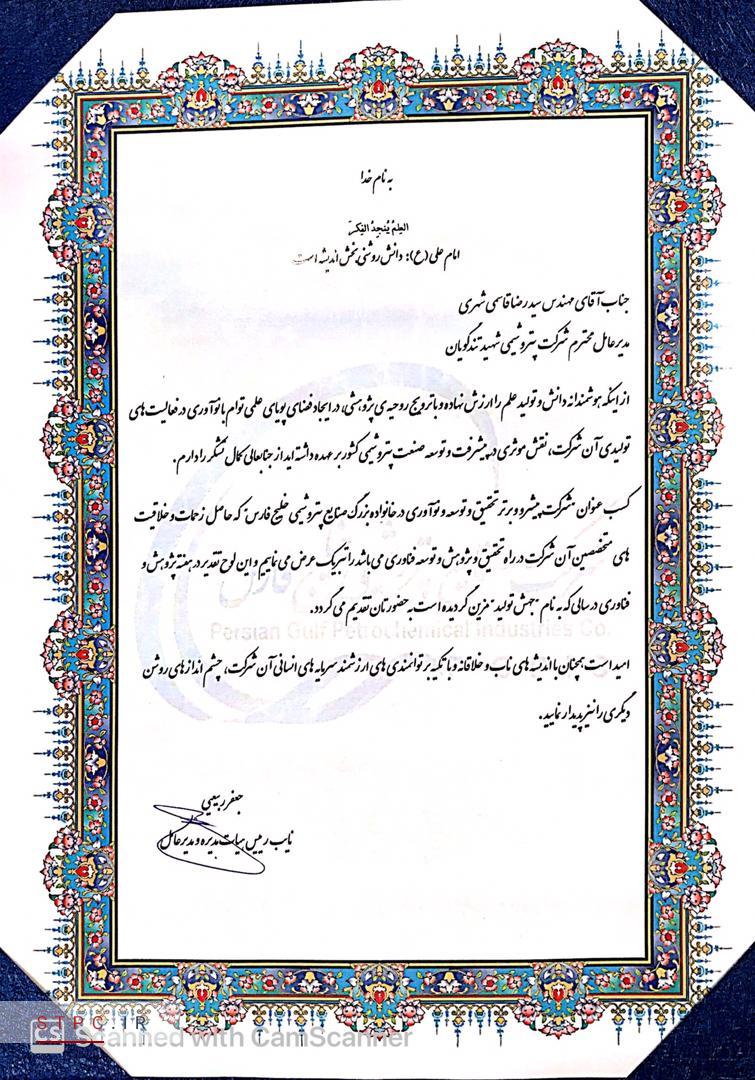 به نام خدا
العِلمُ یُنجِدُ الفِکرَ
امام علی (ع): دانش روشنی بخش اندیشه است
جناب آقای مهندس سید رضا قاسمی شهری
مدیرعامل محترم شرکت پتروشیمی شهید تندگویان
از اینکه هوشمندانه دانش و تولید علم را ارزش نهاده و با ترویج روحیه ی پژوهشی، در ایجاد فضای پویای علمی توام با نوآوری در فعالیت های
تولیدی آن شرکت، نقش موثری در پیشرفت و توسعه صنعت پتروشیمی کشور بر عهده داشته اید از جنابعالی کمال تشکر را دارم.
کسب عنوان "شرکت پیشرو و برتر تحقیق و توسعه و نوآوری در خانواده بزرگ صنایع پتروشیمی خلیج فارس" که حاصل زحمات و خلاقیت
های متخصصین آن شرکت در راه تحقیق و پژوهش و توسعه فناوری می باشد را تبریک عرض می نماییم و این لوح تقدیر در هفته پژوهش و
فناوری در سالی که به نام "جهش تولید" مزین گردیده است به حضورتان تقدیم می گردد.
Persian Gulf Petrochemical Industries Co.
امید است همچنان با اندیشه های ناب و خلاقانه و با تکیه بر توانمندی های ارزشمند سرمایه های انسانی آن شرکت، چشم اندازهای روشن
دیگری را نیز پدیدار نمایید.
جعفر ربیعی
نایب رییس هیات مدیره و مدیرعامل
STPC.IR
CS Scanned with CamScanner